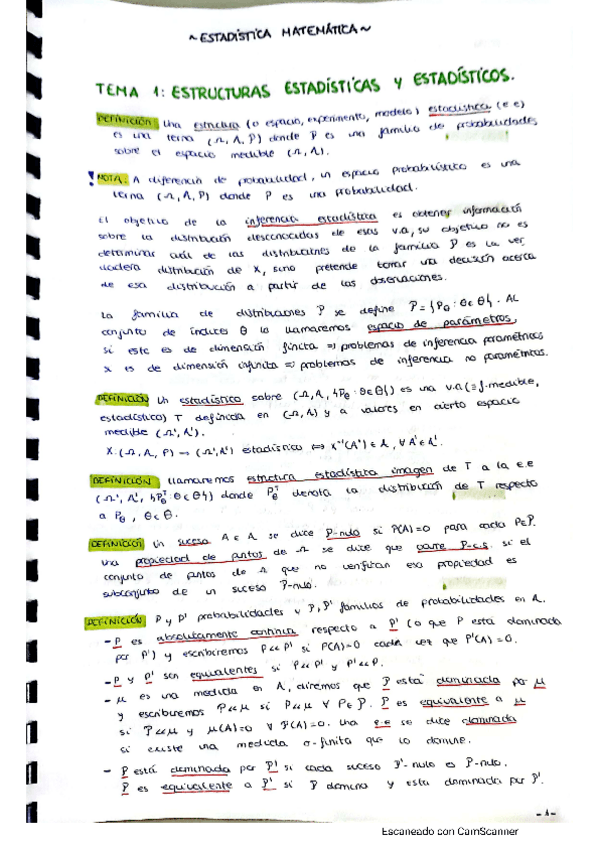 ~ESTADÍSTICA MATEMÁTICA~
TEMA 1: ESTRUCTURAS ESTADÍSTICAS Y ESTADÍSTICOS.
DEFINICIÓN Una estructura (o espacio, experimento, modelo) estadística (e e)
es una terna (Ω, A, P) donde P es una familia de probabilidades
sobre el espacio medible (Ω, A).
! NOTA: A diferencia de probabilidad, un espacio probabilístico es una
terna (Ω, A, P) donde P es una probabilidad.
El objetivo de la inferencia estadística es obtener información
sobre la distribución desconocidas de esas v.a, su objetivo no es
determinar cuál de las distribuciones de la familia P es la ver
dadera distribución de X, sino pretende tomar una decisión acerca
de esa distribución a partir de las observaciones.
La familia de distribuciones P se define P = {Pθ : θ ∈ Θ}. Al
conjunto de índices Θ lo llamaremos espacio de parámetros,
si este es de dimensión finita ⇒ problemas de inferencia paramétricos
x es de dimensión infinita ⇒ problemas de inferencia no paramétricos.
DEFINICIÓN Un estadístico sobre (Ω, A, {Pθ : θ ∈ Θ}) es una v.a (≡ f. medible,
estadístico) T definida en (Ω, A) y a valores en cierto espacio
medible (Ω', A').
X: (Ω, A, P) → (Ω', A') estadístico ⇔ X⁻¹(A') ∈ A, ∀ A' ∈ A'.
DEFINICIÓN Llamaremos estructura estadística imagen de T a la e.e
(Ω', A', {Pθᵀ : θ ∈ Θ}) donde Pθᵀ denota la distribución de T respecto
a Pθ, θ ∈ Θ.
DEFINICIÓN Un suceso A ∈ A se dice P-nulo si P(A)=0 para cada P∈P.
Una propiedad de puntos de Ω se dice que ocurre P-c.s. si el
conjunto de puntos de Ω que no verifican esa propiedad es
subconjunto de un suceso P-nulo.
DEFINICIÓN P y P' probabilidades y P, P' familias de probabilidades en A.
- P es absolutamente continua respecto a P' (o que P está dominada
por P') y escribiremos P≪P' si P(A)=0 cada vez que P'(A)=0.
- P y P' son equivalentes si P≪P' y P'≪P.
- μ es una medida en A, diremos que P está dominada por μ
y escribiremos P≪μ si P≪μ ∀ P∈P. P es equivalente a μ
si P≪μ y μ(A)=0 ∀ P(A)=0. Una e.e se dice dominada
si existe una medida σ-finita que la domine.
- P está dominada por P' si cada suceso P'-nulo es P-nulo.
P es equivalente a P' si P domina y esta dominada por P'.
-1-
Escaneado con CamScanner